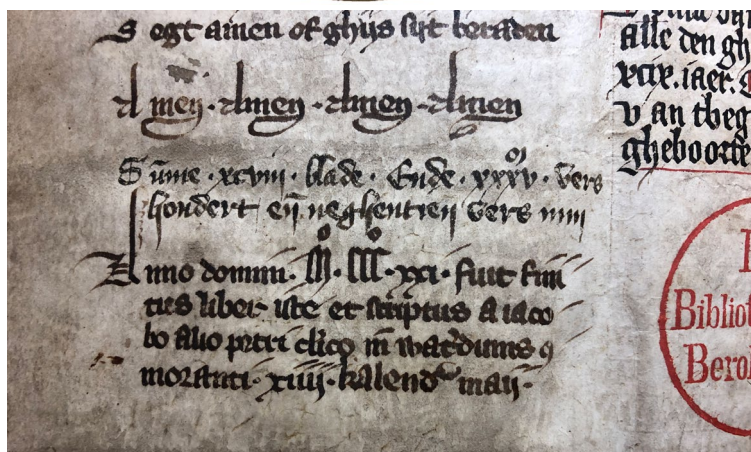 S egt amen of ghijs sijt beraden
Amen · Amen · Amen · Amen
Sũme · xcviii · blade · Ende · xxxv · vers
hondert eñ neghentien vers min
Anno domini · M · CCC · xxi · fuit fini
tus liber iste et scriptus a iaco
bo filio petri clico in
moranti · xiiij · kalend maij ·
alle den gh
xcix. iaer.
v an tbeg
gheboorte
Bibliot
Berol